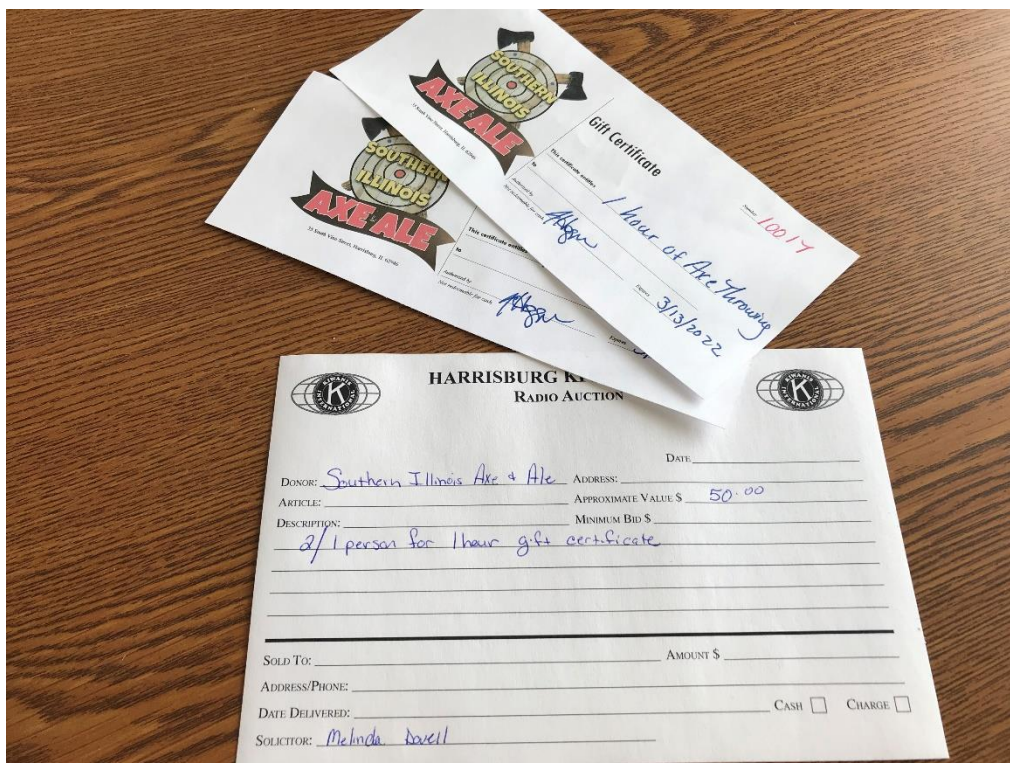 SOUTHERN
ILLINOIS
AXE & ALE
35 South Vine Street, Harrisburg, IL 62946
Gift Certificate
Number 10017
This certificate entitles
to 1 hour of Axe Throwing
Authorized by
Expires 3/13/2022
Not redeemable for cash.
SOUTHERN
ILLINOIS
AXE & ALE
35 South Vine Street, Harrisburg, IL 62946
This certificate entitles
to
Authorized by
Expires
Not redeemable for cash.
HARRISBURG
RADIO AUCTION
KIWANIS INTERNATIONAL
K
KIWANIS INTERNATIONAL
K
DATE
DONOR: Southern Illinois Axe & Ale ADDRESS:
ARTICLE: APPROXIMATE VALUE $ 50.00
DESCRIPTION: MINIMUM BID $
2/1 person for 1 hour gift certificate
SOLD TO: AMOUNT $
ADDRESS/PHONE:
DATE DELIVERED: CASH CHARGE
SOLICITOR: Melinda Dovell